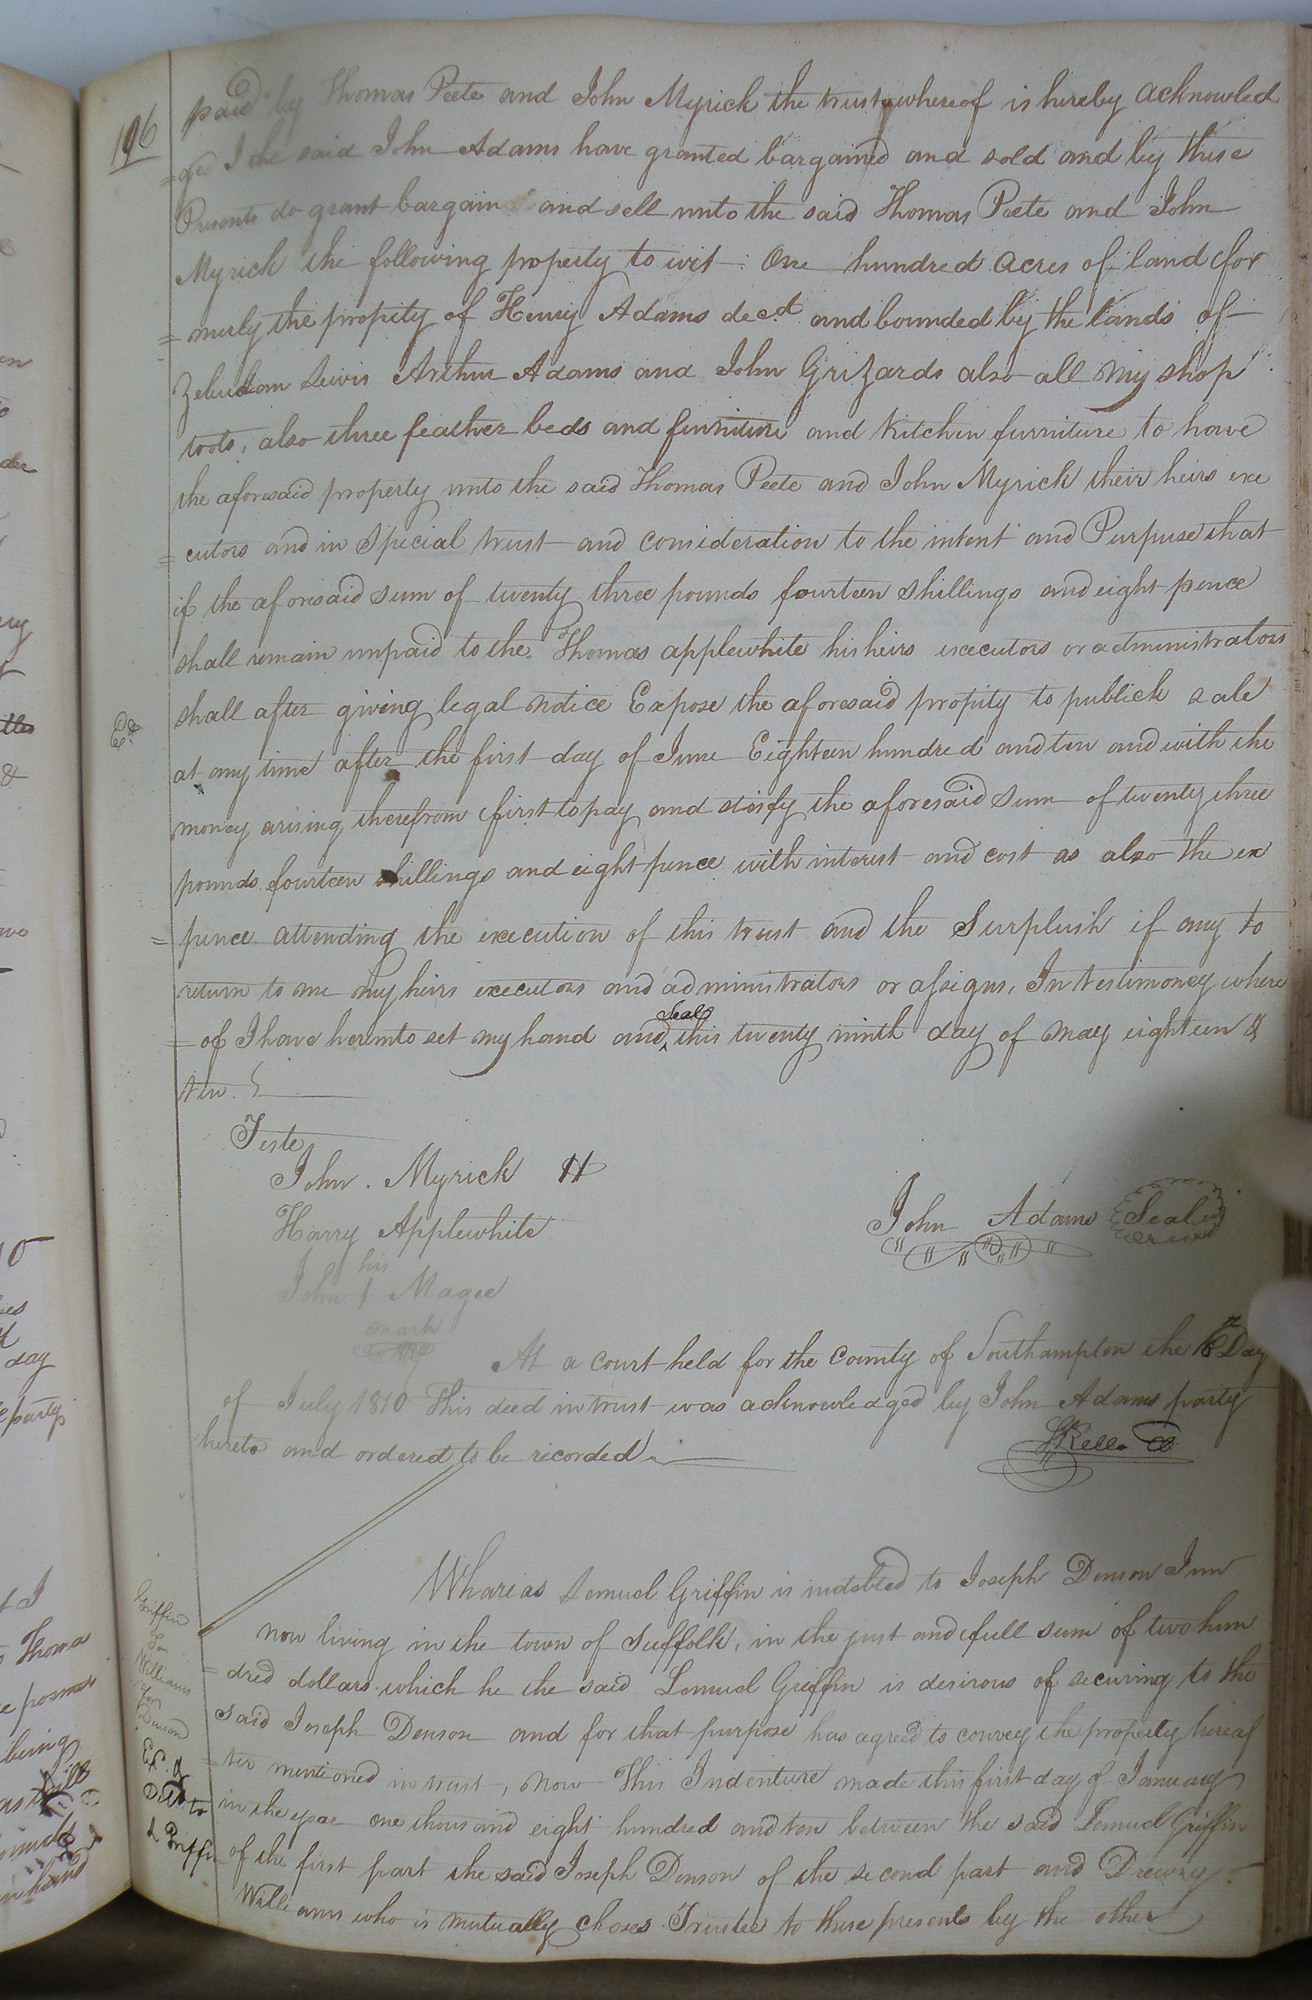 196
paid by Thomas Peete and John Myrick the trust whereof is hereby acknowled
=ged I the said John Adams have granted bargained and sold and by these
Presents do grant bargain and sell unto the said Thomas Peete and John
Myrick the following property to wit: One hundred acres of land for
=merly the propity of Henry Adams decd and bounded by the lands of
Zebudam Lewis Arthur Adams and John Grizards also all my shop
tools, also three feather beds and furniture and kitchen furniture to have
the aforesaid property unto the said Thomas Peete and John Myrick their heirs exe
=cutors and in Special trust and consideration to the intent and Purpuse that
if the aforesaid sum of twenty three pounds fourteen shillings and eight pence
shall remain unpaid to the Thomas applewhite his heirs executors or administrators
shall after giving legal notice Expose the aforesaid propity to publick sale
at any time after the first day of June Eighteen hundred and ten and with the
money arising therefrom first to pay and stisfy the aforesaid sum of twenty three
pounds fourteen shillings and eight pence with interest and cost as also the ex
=pence attending the execution of this trust and the Surplush if any to
return to me my heirs executors and administrators or assigns, In testimoney where
=of I have hereunto set my hand and Seal this twenty ninth day of may eighteen &
ten.
Teste
John. Myrick
Harry Applewhite
his
John Magee
mark
John Adams Seal
At a court held for the County of Southampton the Day
of July 1810 This deed in trust was acknowledged by John Adams party
hereto and ordered to be recorded
Kello
Griffin
To
Williams
for
Denson
to
L Griffin
Whareas Lemuel Griffin is indebted to Joseph Denson Junr
now living in the town of Suffolk, in the just and full sum of two hun
=dred dollars which he the said Lemuel Griffin is desirous of securing to the
said Joseph Denson and for that purpose has agreed to convey the property hereaf
=ter mentioned in trust, Now This Indenture made this first day of January
in the year one thousand eight hundred and ten between the said Lemuel Griffin
of the first part the said Joseph Denson of the second part and Drewry
Williams who is mutually choses Trustee to these presents by the other